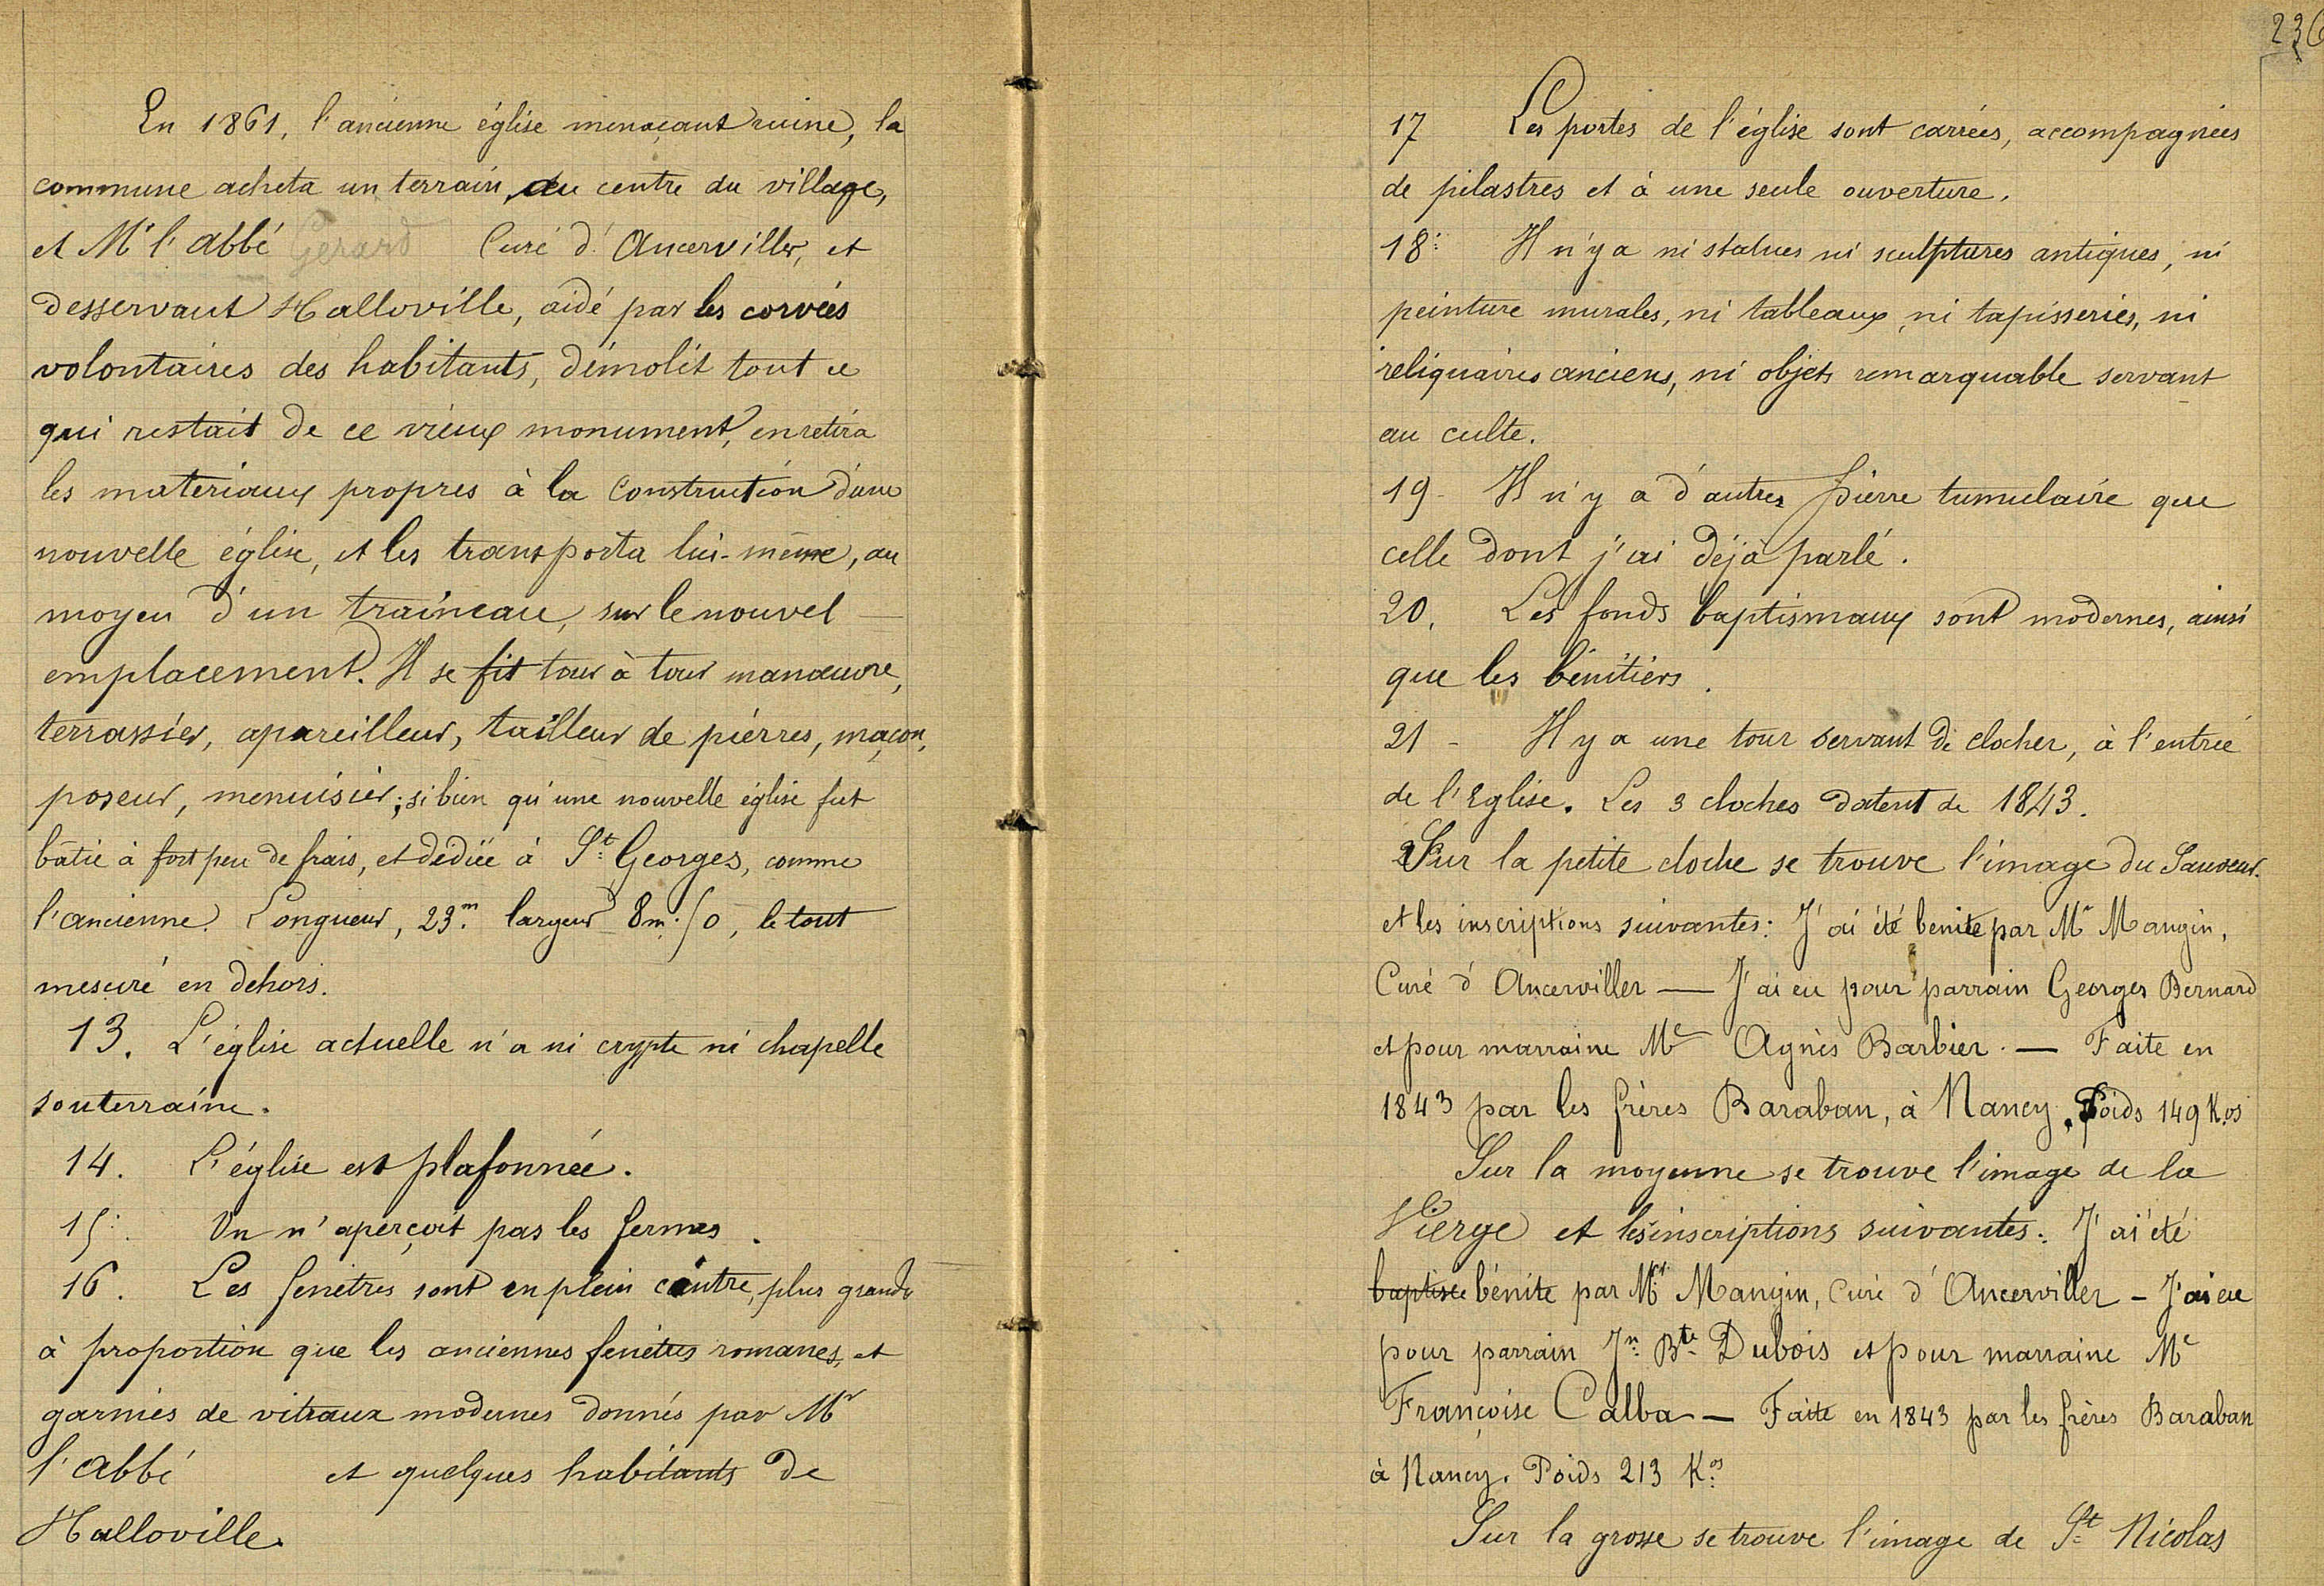 En 1861, l'ancienne église menaçant ruine, la
commune acheta un terrain, au centre du village,
et Mr l'abbé Gerard Curé d'Ancerviller, et
desservant Halloville, aidé par les corvées
volontaires des habitants, démolit tout ce
qui restait de ce vieux monument, en retira
les materiaux propres à la construction d'une
nouvelle église, et les transporta lui-même, au
moyen d'un traineau, sur le nouvel
emplacement. Il se fit tour à tour manœuvre,
terrassier, apareilleur, tailleur de pierres, maçon,
poseur, menuisier; si bien qu'une nouvelle église fut
bâtie à fort peu de frais, et dédiée à St Georges, comme
l'ancienne. Longueur, 23m. largeur 8m.50, le tout
mesuré en dehors.
13. L'église actuelle n'a ni crypte ni chapelle
souterraine.
14. L'église est plafonnée.
15. On n'aperçoit pas les fermes.
16. Les fenêtres sont en plein cintre, plus grandes
à proportion que les anciennes fenêtres romanes, et
garnies de vitraux modernes donnés par Mr
l'abbé et quelques habitants de
Halloville.
236
17 Les portes de l'église sont carrées, accompagnées
de pilastres et à une seule ouverture.
18. Il n'y a ni statues ni sculptures antiques, ni
peinture murales, ni tableaux, ni tapisseries, ni
reliquaires anciens, ni objets remarquable servant
au culte.
19 - Il n'y a d'autres pierre tumulaire que
celle dont j'ai déjà parlé.
20. Les fonds baptismaux sont modernes, ainsi
que les bénitiers.
21 - Il y a une tour servant de clocher, à l'entrée
de l'Eglise. Les 3 cloches datent de 1843.
Sur la petite cloche se trouve l'image du Sauveur.
et les inscriptions suivantes: J'ai été benite par Mr Mangin,
Curé d'Ancerviller — J'ai eu pour parrain Georges Bernard
et pour marraine Me Agnès Barbier. — Faite en
1843 par les frères Baraban, à Nancy. Poids 149 Kos
Sur la moyenne se trouve l'image de la
Vierge et les inscriptions suivantes: J'ai été
baptisée bénite par Mr Mangin, Curé d'Ancerviller - J'ai eu
pour parrain Jn Bte Dubois et pour marraine Me
Françoise Calba — Faite en 1843 par les frères Baraban
à Nancy. Poids 213 Kos
Sur la grosse se trouve l'image de St Nicolas